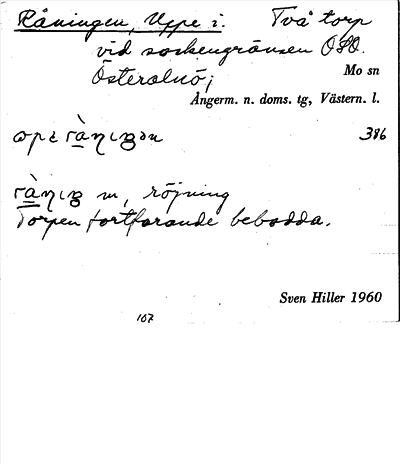 Råningen, Uppe i. Två torp
vid sockengränsen OSO.
Österalnö;
Mo sn
Ångerm. n. doms. tg, Västern. l.
386
m, röjning
Torpen fortfarande bebodda.
Sven Hiller 1960
107